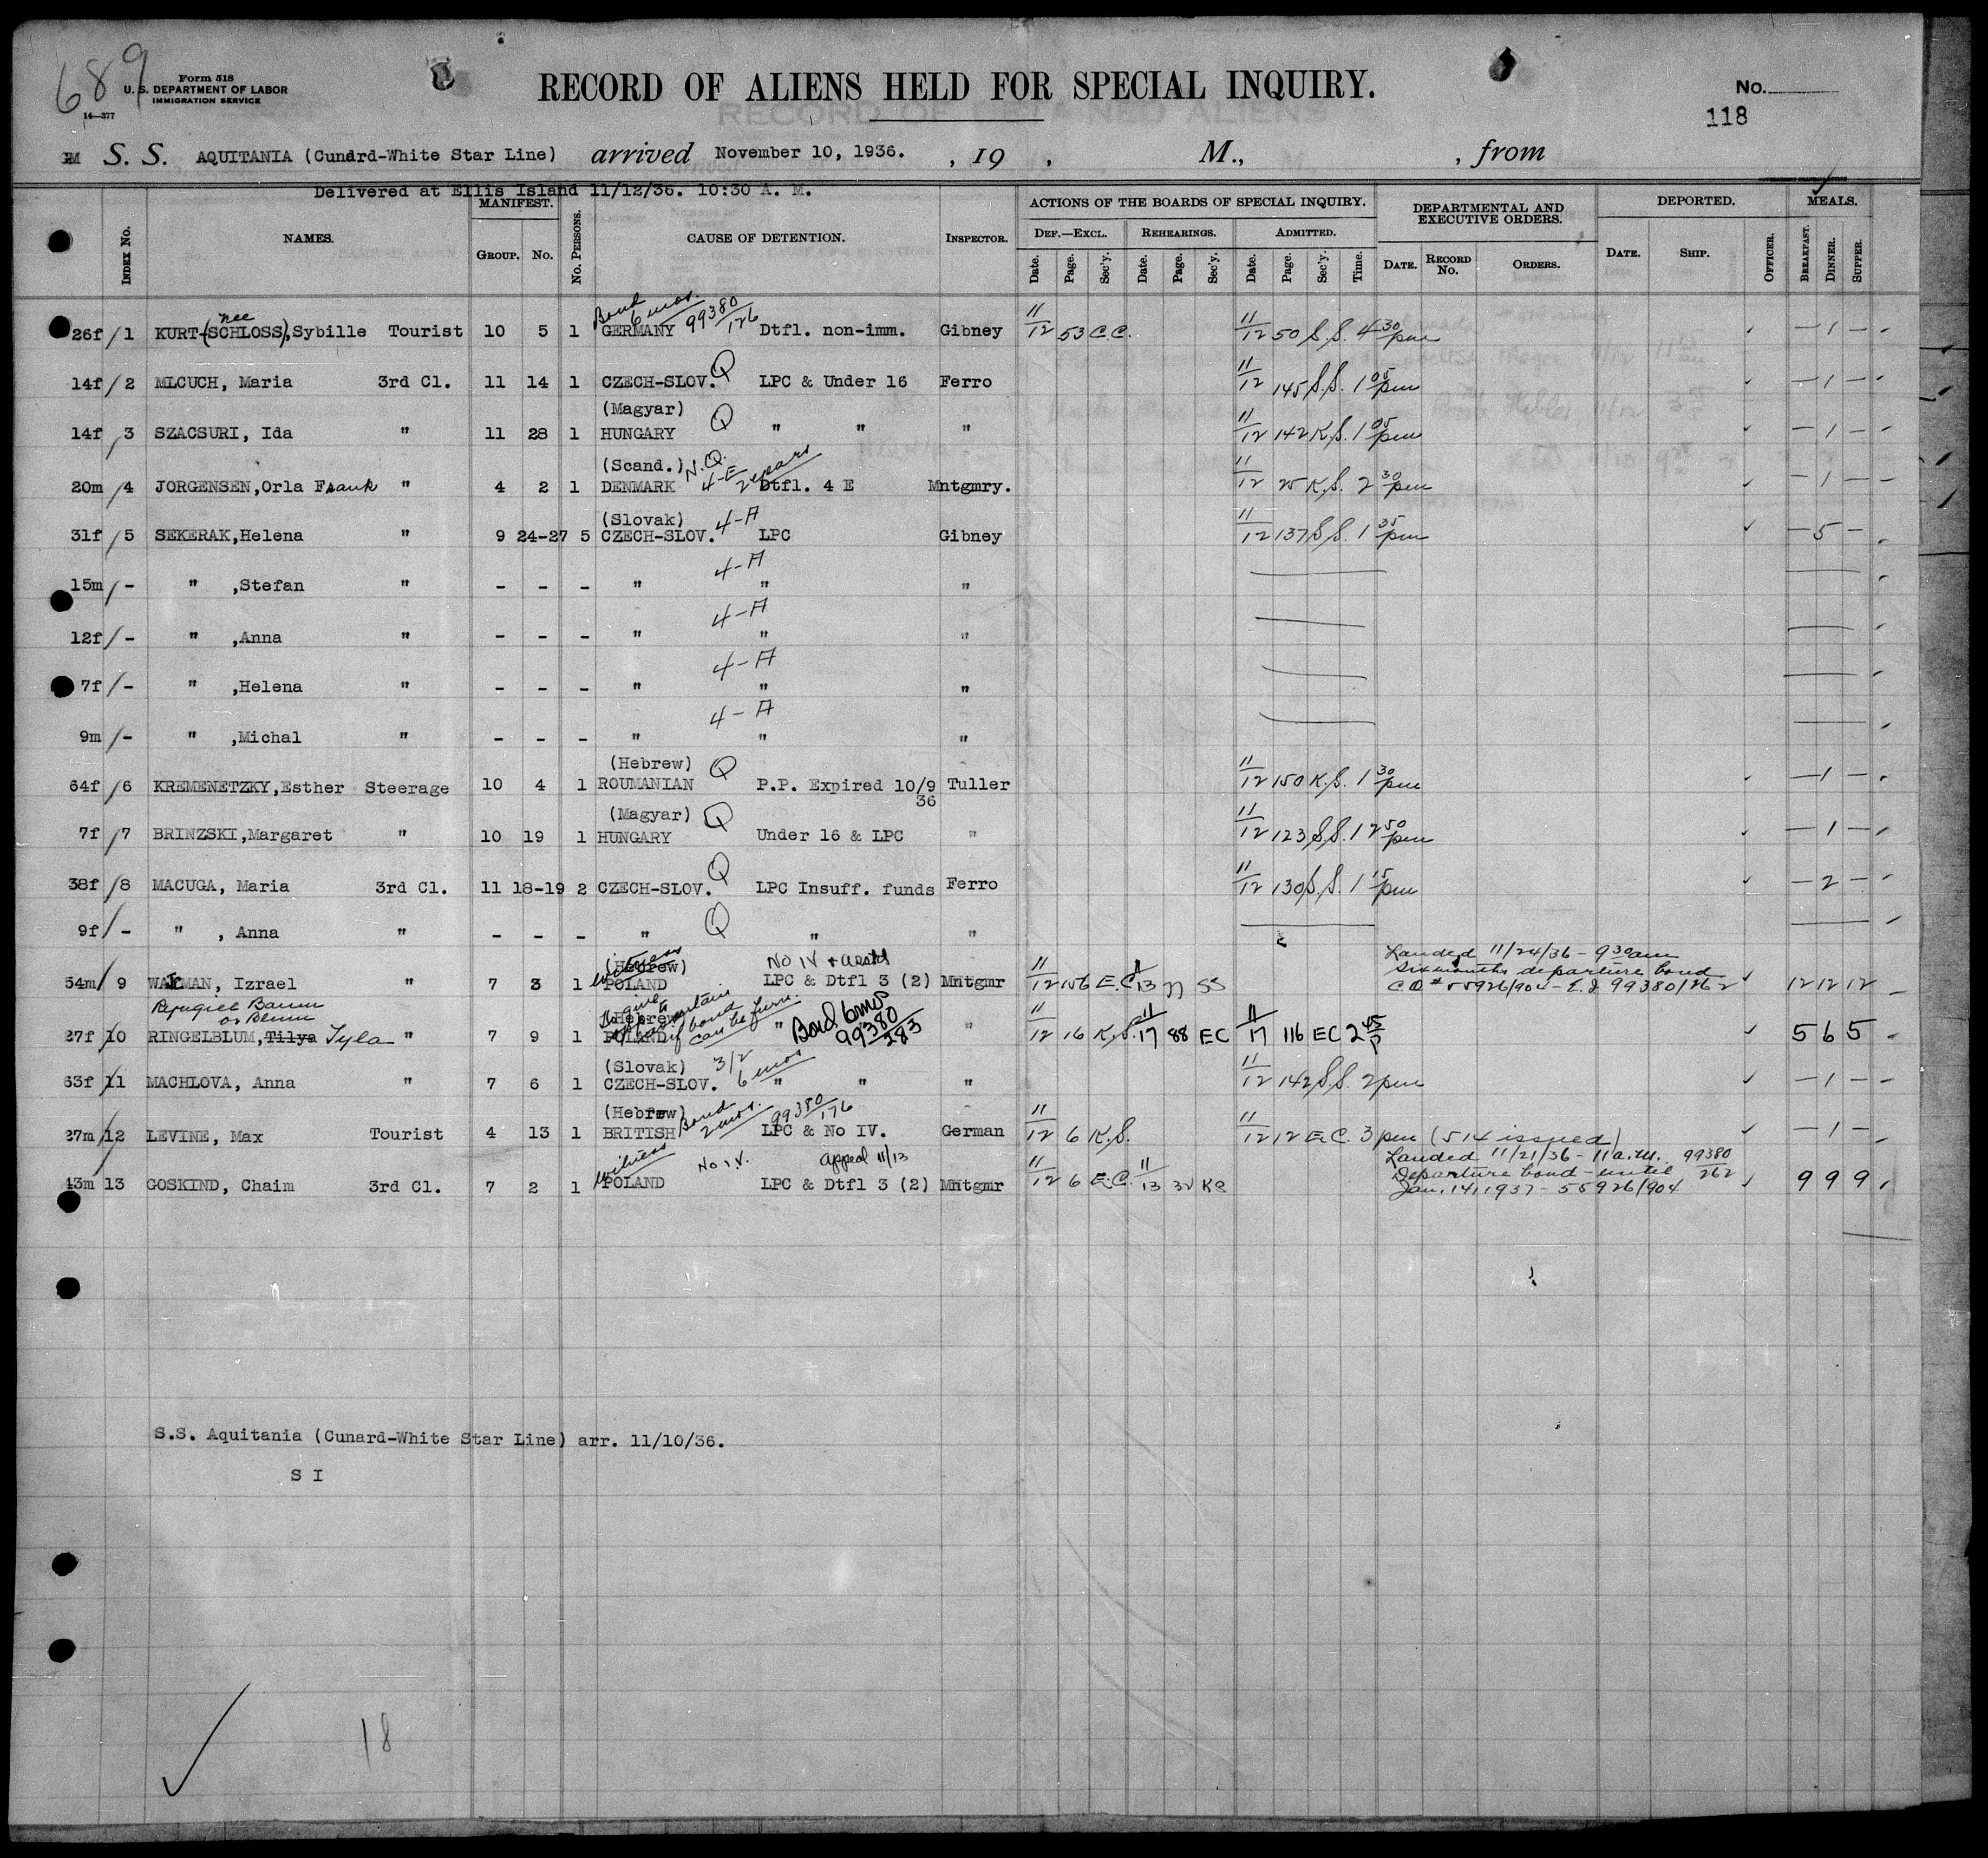 689
Form 518
U. S. DEPARTMENT OF LABOR
IMMIGRATION SERVICE
14—377
RECORD OF ALIENS HELD FOR SPECIAL INQUIRY.
No.
118
S. S. AQUITANIA (Cunard-White Star Line) arrived November 10, 1936. , 19 , M., , from
Delivered at Ellis Island 11/12/36. 10:30 A. M.
MANIFEST. ACTIONS OF THE BOARDS OF SPECIAL INQUIRY. DEPARTMENTAL AND EXECUTIVE ORDERS. DEPORTED. MEALS.
Index No. NAMES. GROUP. No. No. PERSONS. CAUSE OF DETENTION. INSPECTOR. DEF.—EXCL. REHEARINGS. ADMITTED.
Date. Page. Sec'y. Date. Page. Sec'y. Date. Page. Sec'y. Time. DATE. RECORD No. ORDERS. DATE. SHIP. OFFICER. BREAKFAST. DINNER. SUPPER.
Bond 6 mos. 99380/126
nee
26f 1 KURT-(SCHLOSS),Sybille Tourist 10 5 1 GERMANY Dtfl. non-imm. Gibney 11/12 53 C.C. 11/12 50 S.S. 4 30 pm — 1 —
14f 2 MLCUCH, Maria 3rd Cl. 11 14 1 CZECH-SLOV. Q LPC & Under 16 Ferro 11/12 145 S.S. 1 05 pm — 1 —
(Magyar)
14f 3 SZACSURI, Ida " 11 28 1 HUNGARY Q " " " 11/12 142 K.S. 1 05 pm — 1 —
(Scand.) N.Q. 4-E 2 years
20m 4 JORGENSEN,Orla Frank " 4 2 1 DENMARK Dtfl. 4 E Mntgmry. 11/12 25 K.S. 2 30 pm — 1 —
(Slovak) 4-A
31f 5 SEKERAK,Helena " 9 24-27 5 CZECH-SLOV. LPC Gibney 11/12 137 S.S. 1 35 pm — 5 —
4-A
15m - " ,Stefan " - - - " " "
4-A
12f - " ,Anna " - - - " " "
4-A
7f - " ,Helena " - - - " " "
4-A
9m - " ,Michal " - - - " " "
(Hebrew) Q
64f 6 KREMENETZKY,Esther Steerage 10 4 1 ROUMANIAN P.P. Expired 10/9 36 Tuller 11/12 150 K.S. 1 30 pm — 1 —
(Magyar) Q
7f 7 BRINZSKI,Margaret " 10 19 1 HUNGARY Under 16 & LPC " 11/12 123 S.S. 12 50 pm — 1 —
38f 8 MACUGA, Maria 3rd Cl. 11 18-19 2 CZECH-SLOV. Q LPC Insuff. funds Ferro 11/12 130 S.S. 1 15 pm — 2 —
9f - " , Anna " - - - " Q " "
(Hebrew) witness No IV Landed 11/24/36 - 9 30 am
54m 9 Izrael " 7 3 1 POLAND LPC & Dtfl 3 (2) Mntgmr 11/12 156 E.C. 11/13 77 SS Six months departure bond
C.O # 55926/904 - 99380/262 12 12 12
Baum
or Blum (Hebrew) if bond can be furn. Bond 6mos 99380/283
27f 10 RINGELBLUM,Tilya Tyla " 7 9 1 POLAND " " 11/12 16 K.S. 11/17 88 EC 11/17 116 EC 2 45 P 5 6 5
(Slovak) 3/2 6 mos
63f 11 MACHLOVA, Anna " 7 6 1 CZECH-SLOV. " " " 11/12 142 S.S. 2 pm — 1 —
(Hebrew) Bond 2 mos. 99380/176
27m 12 LEVINE, Max Tourist 4 13 1 BRITISH LPC & No IV. German 11/12 6 K.S. 11/12 12 E.C. 3 pm (514 issued) — 1 —
witness No I.V. appeal 11/13 Landed 11/21/36 - 11 a.m. 99380/262
43m 13 GOSKIND, Chaim 3rd Cl. 7 2 1 POLAND LPC & Dtfl 3 (2) Mntgmr 11/12 6 E.C. 11/13 32 KS Departure bond - until
Jan. 14, 1937 - 55926/904 9 9 9
S.S. Aquitania (Cunard-White Star Line) arr. 11/10/36.
S I
18